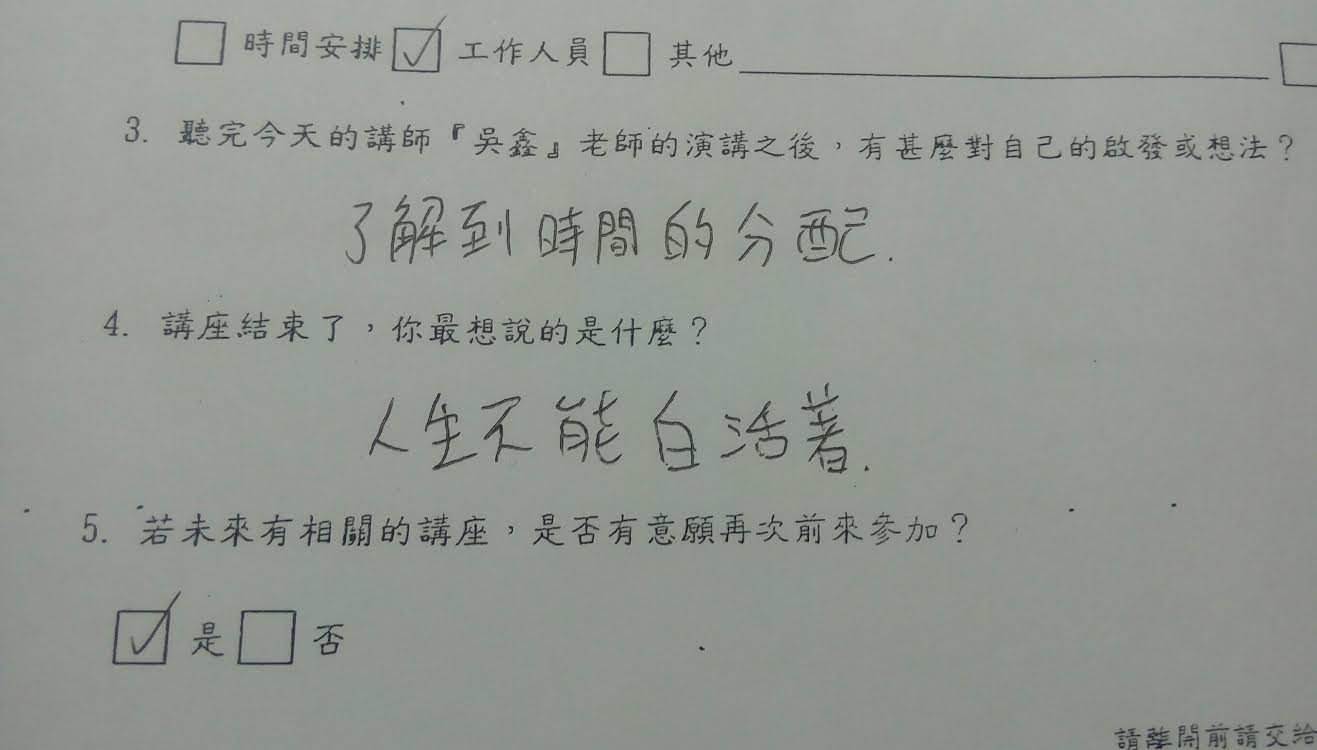 □ 時間安排 ☑ 工作人員 □ 其他
3. 聽完今天的講師『吳鑫』老師的演講之後，有甚麼對自己的啟發或想法？
了解到時間的分配.
4. 講座結束了，你最想說的是什麼？
人生不能白活著.
5. 若未來有相關的講座，是否有意願再次前來參加？
☑ 是 □ 否
請離開前請交給